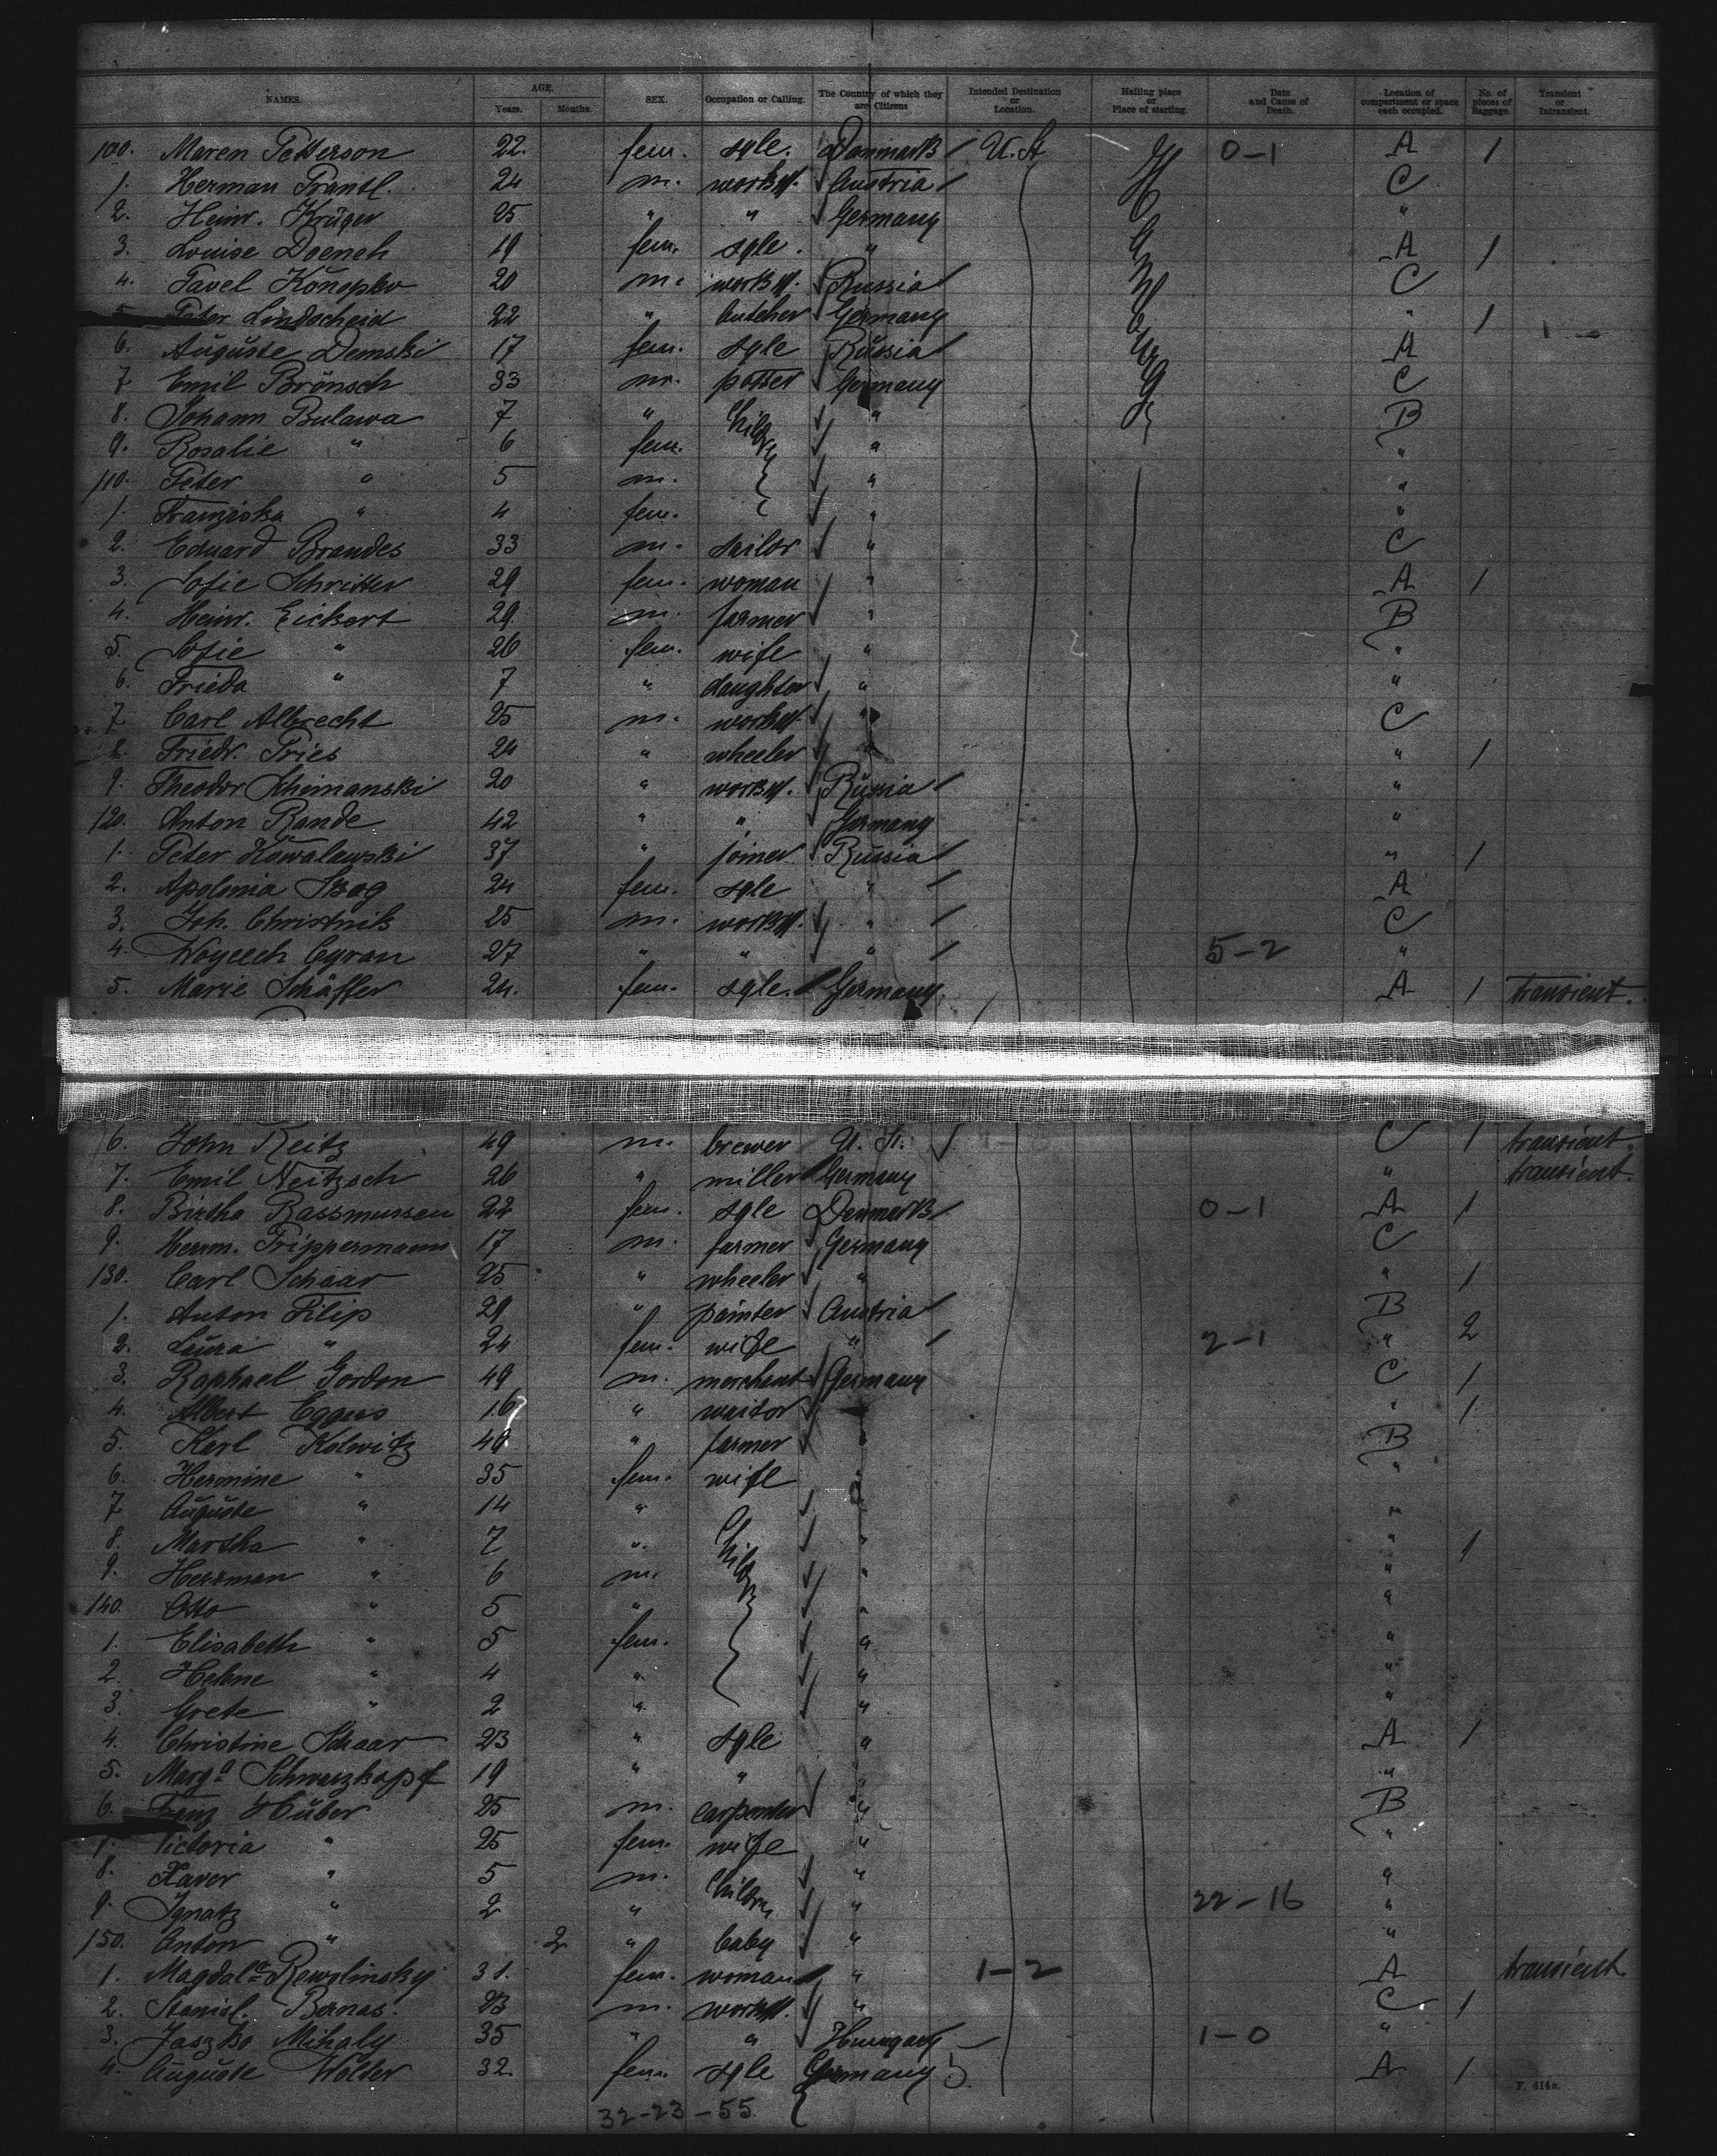 NAMES. AGE. Years. Months. SEX. Occupation or Calling. The Country of which they are Citizens Intended Destination or Location. Hailing place or Place of starting. Date and Cause of Death. Location of compartment or space each occupied. No. of pieces of Baggage. Transient or Intransient.
100. Maren Petterson 22. fem. sgle. Danmark U. St 0-1 A 1
1. Herman Prantl. 24 m. Austria C
2. Heinr. Krüger 25 " " Germany "
3. Louise 19 fem. sgle. " A 1
4. Pavel Konopko 20 m. Russia C
5 Peter Lindscheid 22 " butcher Germany " 1
6. Auguste Demski 17 fem. sgle Russia A
7 Emil Brönsch 33 m. potter Germany C
8. Johann Bulawa 7 " Childr. " B
9. Rosalie " 6 fem. " "
110. Peter " 5 m. " "
1. Franziska " 4 fem. " "
2. Eduard Brandes 33 m. sailor " C
3. Sofie Schritter 29 fem. woman " A 1
4. Heinr. Eickert 29. m. farmer " B
5. Sofie " 26 fem. wife " "
6. Frieda " 7 " daughter " "
7 Carl Albrecht 25 m. " C
8. Friedr. Pries 24 " wheeler " " 1
9. Theodor Schimanski 20 " Russia "
120. Anton Rande 42 " " Germany "
1. Peter Kowalewski 37 " joiner Russia " 1
2. Apolonia 24 fem. sgle " A
3. Joh. Christnik 25 m. " C
4. Woycech Cyran 27 " " " 5-2 "
5. Marie Schäffer 24. fem. sgle. Germany A 1 transient.
6. John Reitz 49 m. brewer U. St. C 1 transient.
7. Emil Neitzsch 26 " miller Germany " transient.
8. Birtha Rassmussen 22 fem. sgle Denmark 0-1 A 1
9. Herrm. Trippermann 17 m. farmer Germany C
130. Carl Schaar 25 " wheeler " " 1
1. Anton Filip 29 " painter Austria B
2. Laura " 24 fem. wife " 2-1 " 2
3. Raphael Gordon 49 m. merchant Germany C 1
4. Albert Eggers 16 " waitor " 1
5. Karl Kolwitz 46 " farmer " B
6. Hermine " 35 fem. wife " "
7 Auguste " 14 " " "
8. Martha " 7 " Childr. " " 1
9. Herrman " 6 m. " "
140. Otto " 5 " " "
1. Elisabeth " 5 fem. " "
2. Helene " 4 " " "
3. Grete " 2 " " "
4. Christine Schaar 23 " sgle " A 1
5. Margª Schwarzkopf 19 " " " "
6. Franz Huber 25 m. carpenter " B
7. Victoria " 25 fem. wife " "
8. Xaver " 5 m. Childr. " "
9. Ignatz " 2 " " 22-16 "
150. Anton " 2 " baby " "
1. Magdalª Rewolinsky 31. fem. woman " 1-2 A transient
2. Stanisl. Bernas. 23 m. " C 1
3. Jaszko Mihaly 35 " " Hungary 1-0 "
4. Auguste Wolter 32. fem. sgle Germany 5 A 1
F. 414a.
32-23-55